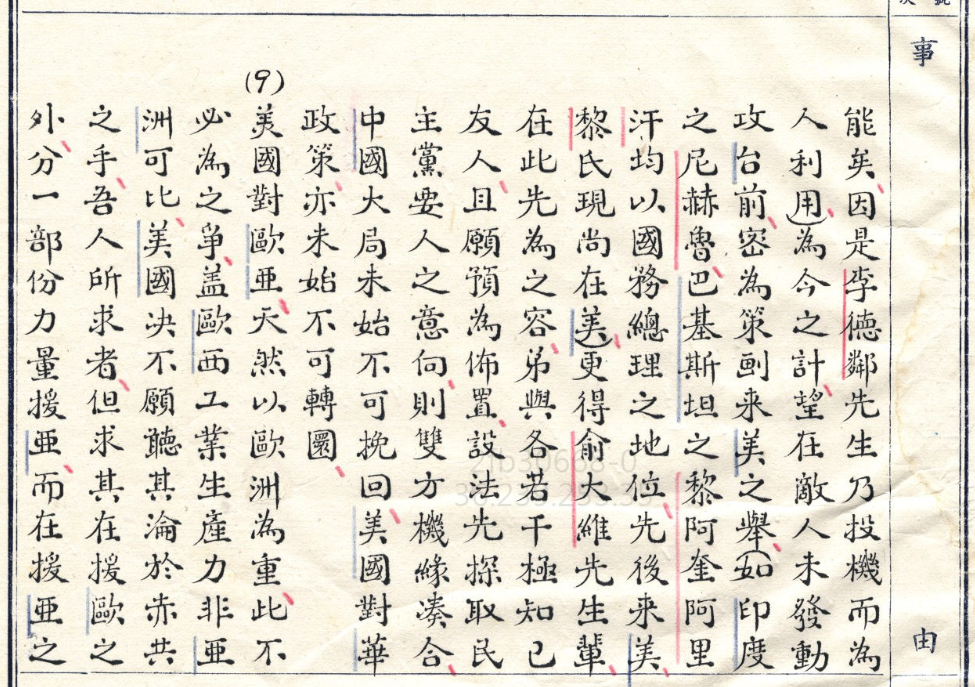 事
由
能矣、因是李德鄰先生乃投機而為
人利用、為今之計、望在敵人未發動
攻台前、密為策劃來美之舉、如印度
之尼赫魯、巴基斯坦之黎阿奎阿里
汗均以國務總理之地位、先後來美、
黎氏現尚在美、更得俞大維先生輩、
在此先為之容、弟與各若干極知已
友人、且願預為佈置、設法先探取民
主黨要人之意向、則雙方機緣湊合、
中國大局未始不可挽回、美國對華
政策、亦未始不可轉圜、
(9)
美國對歐亞、天然以歐洲為重、此不
必為之爭、蓋歐西工業生產力非亞
洲可比、美國決不願聽其淪於赤共
之手、吾人所求者、但求其在援歐之
外、分一部份力量援亞、而在援亞之